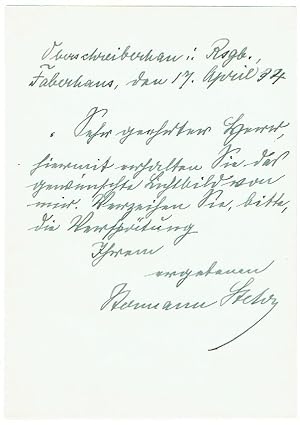 Oberschreiberhau i. Rsgb.,
Faberhaus, den 17. April 34
Sehr geehrter Herr,
hiermit erhalten Sie das
gewünschte Lichtbild von
mir. Verzeihen Sie, bitte,
die Verspätung
Ihrem
ergebenen
Hermann Stehr